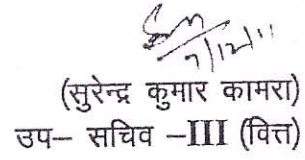 7/12/11
(सुरेन्द्र कुमार कामरा)
उप– सचिव –III (वित्त)